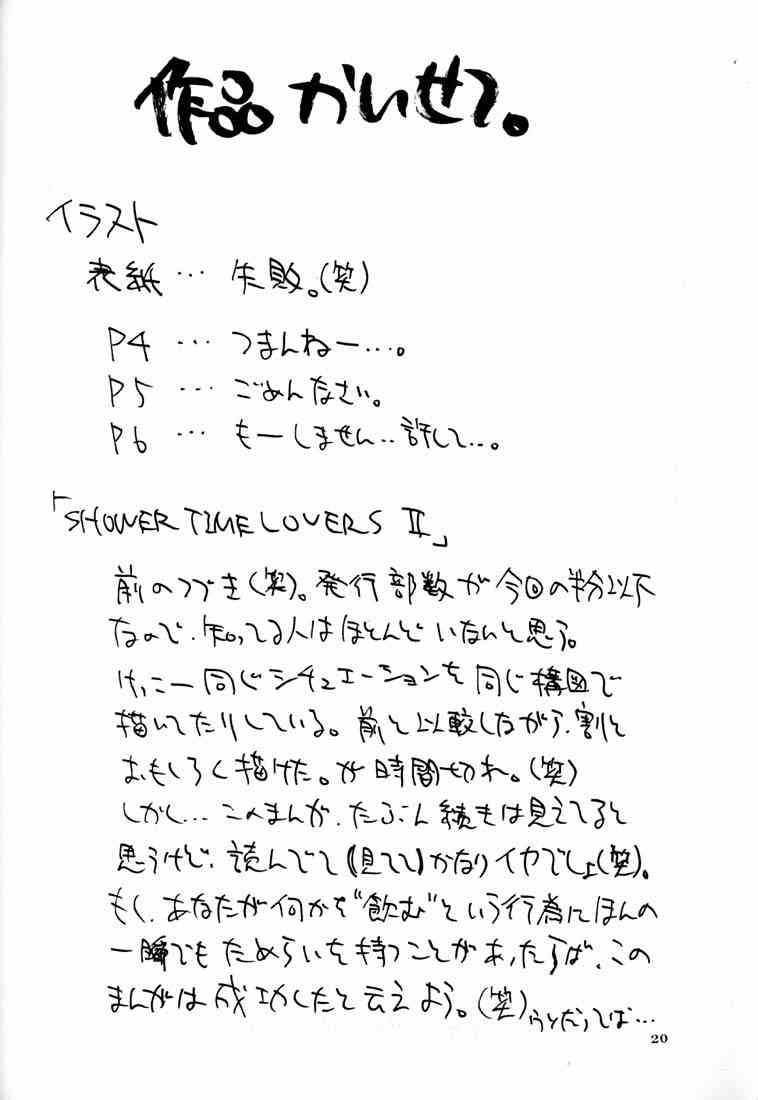 作品かいせつ。
イラスト
表紙… 失敗。(笑)
P4 … つまんねー…。
P5 … ごめんなさい。
P6 … もーしません‥許して…。
「SHOWER TIME LOVERS Ⅱ」
前のつづき(笑)。発行部数が今回の半分以下
なので、知ってる人はほとんどいないと思う。
けっこー同じシチュエーションを同じ構図で
描いてたりしている。前と比較しながら、割と
おもしろく描けた。が時間切れ。(笑)
しかし…このまんが、たぶん続きは見えてると
思うけど、読んでて(見てて)かなりイヤでしょ(笑)。
もし、あなたが何かを“飲む”という行為にほんの
一瞬でもためらいを持つことがあったらば、この
まんがは成功したと云えよう。(笑)うそだってば…
20